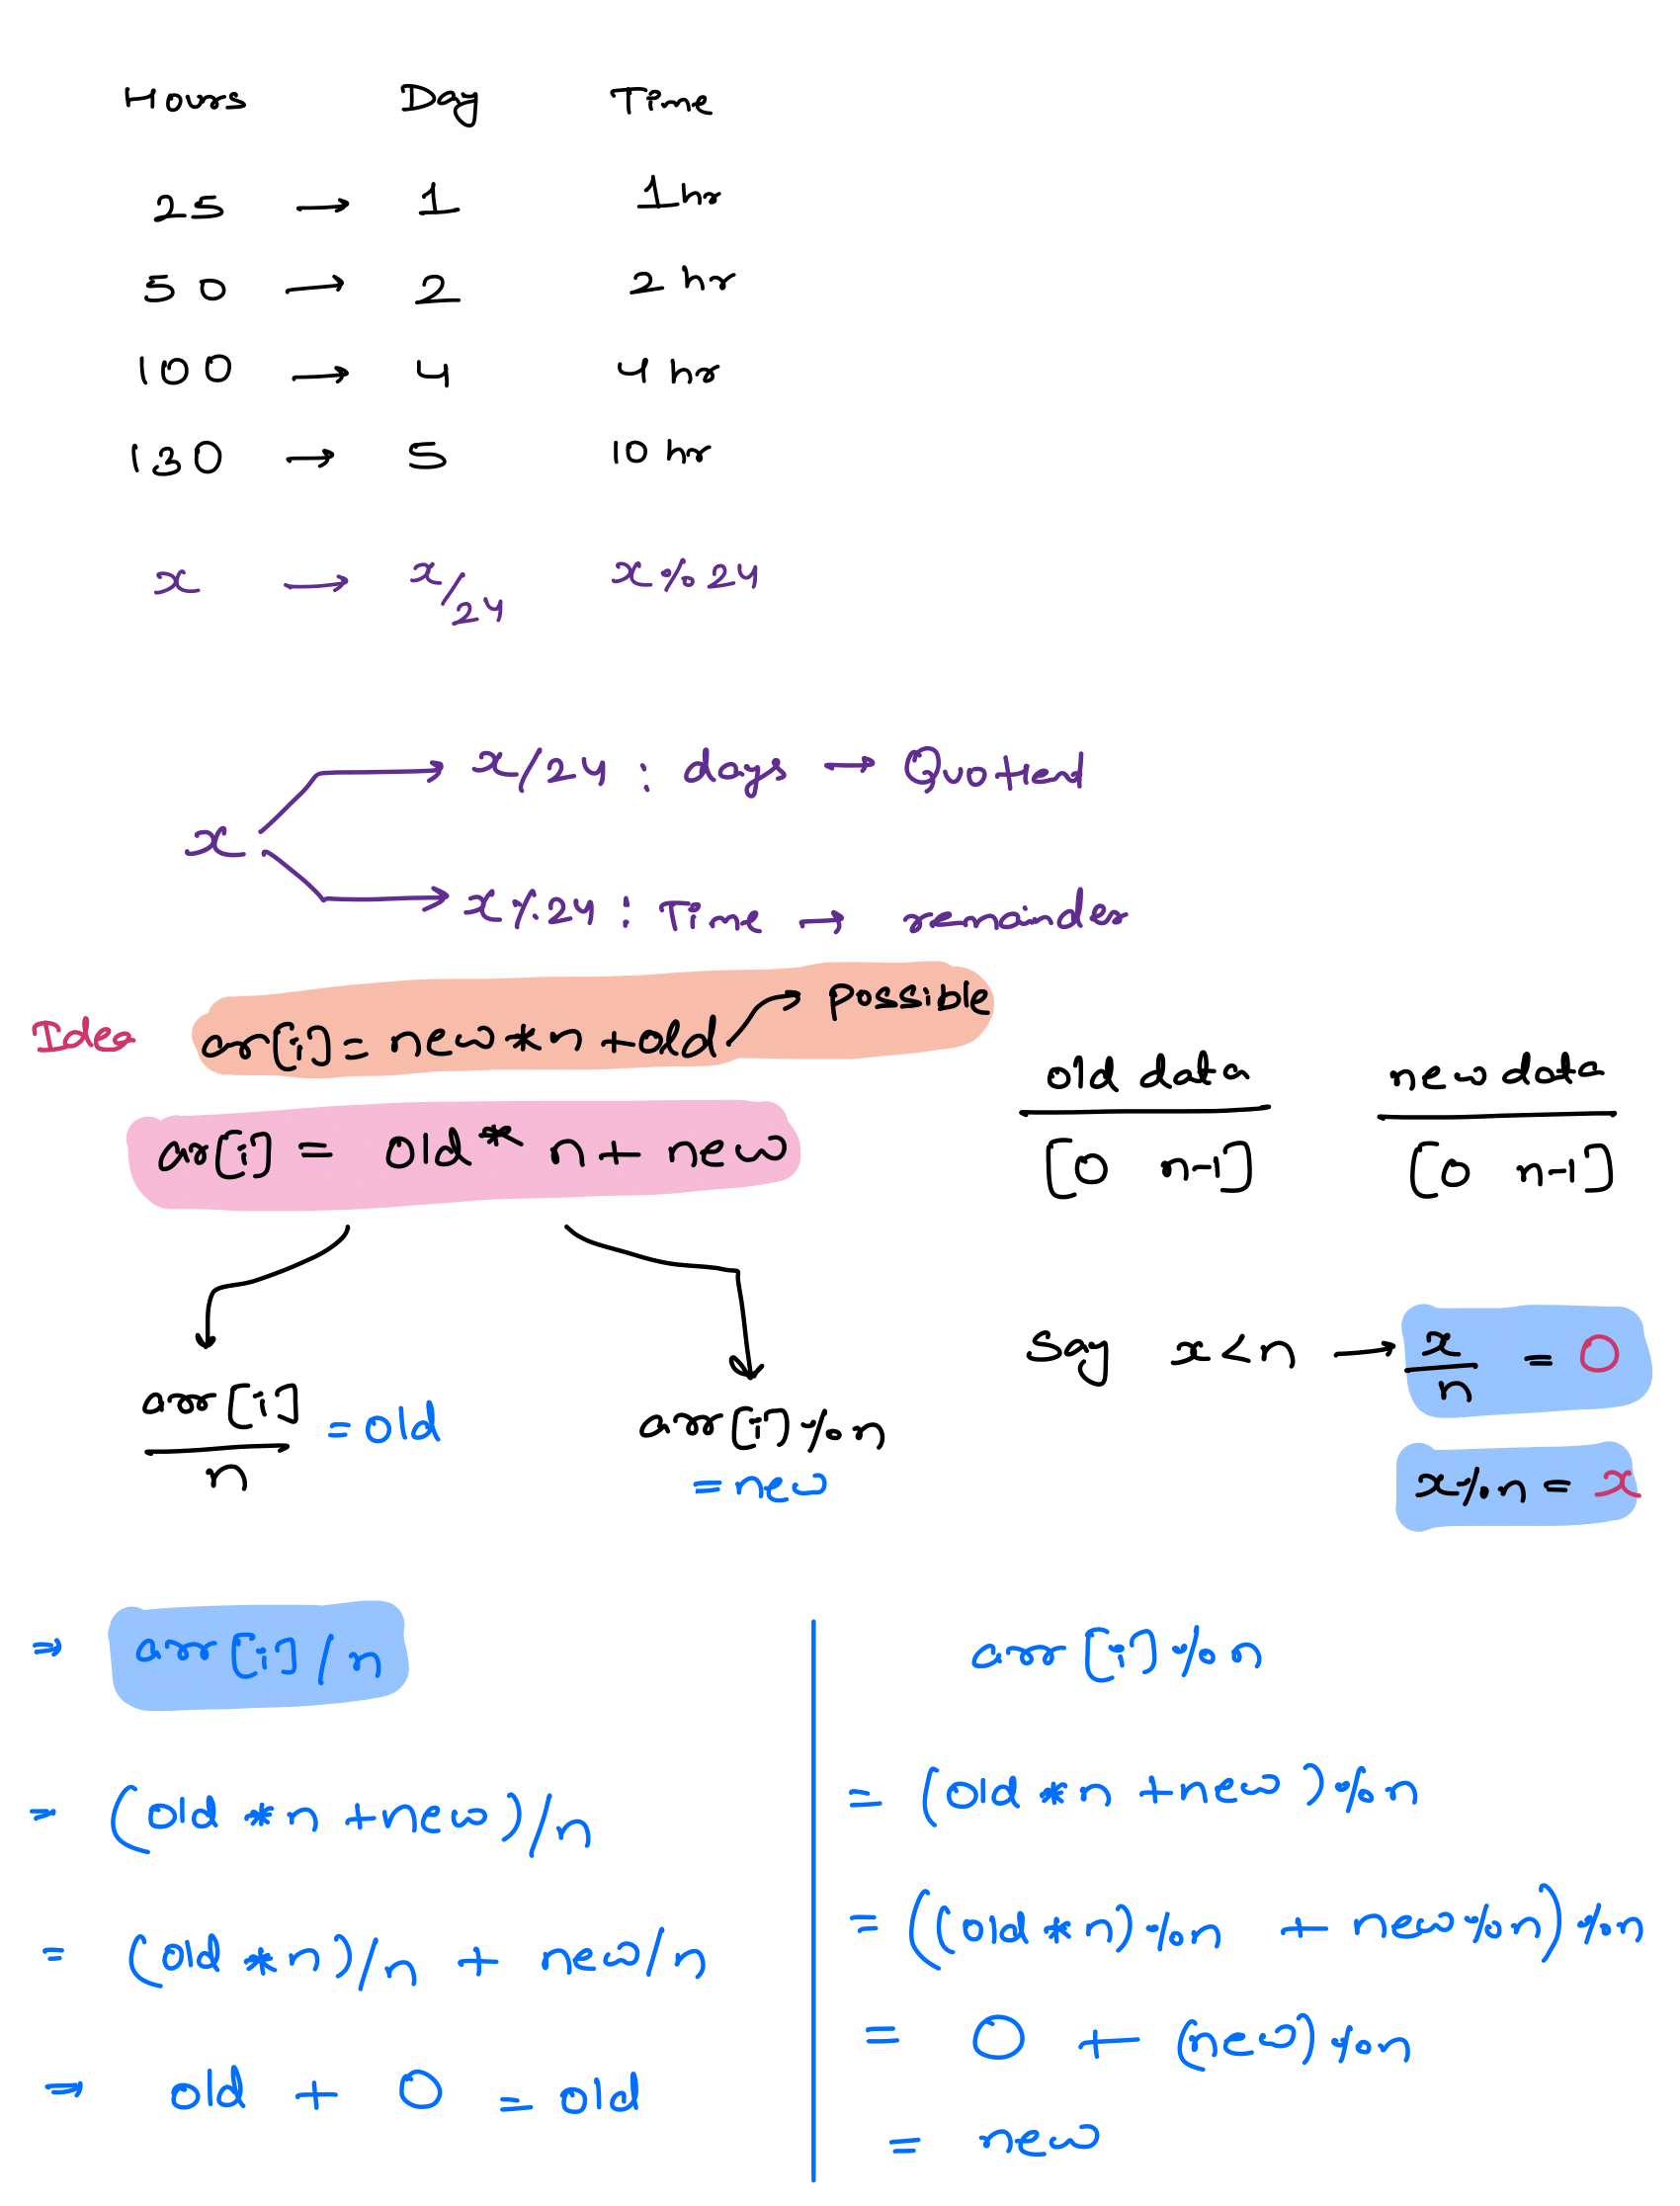 Hours Day Time
25 → 1 1 hr
50 → 2 2 hr
100 → 4 4 hr
130 → 5 10 hr
x → x/24 x % 24
x → x/24 : days → Quotient
→ x%24 : Time → remainder
Idea arr[i] = new * n + old → possible
ar[i] = old * n + new
old data new data
[0 n-1] [0 n-1]
Say x < n → x/n = 0
x%n = x
arr[i]/n = old
arr[i]%n = new
⇒ arr[i]/n
= (old * n + new)/n
= (old * n)/n + new/n
⇒ old + 0 = old
arr[i]%n
= (old * n + new)%n
= ((old * n)%n + new%n)%n
= 0 + (new)%n
= new